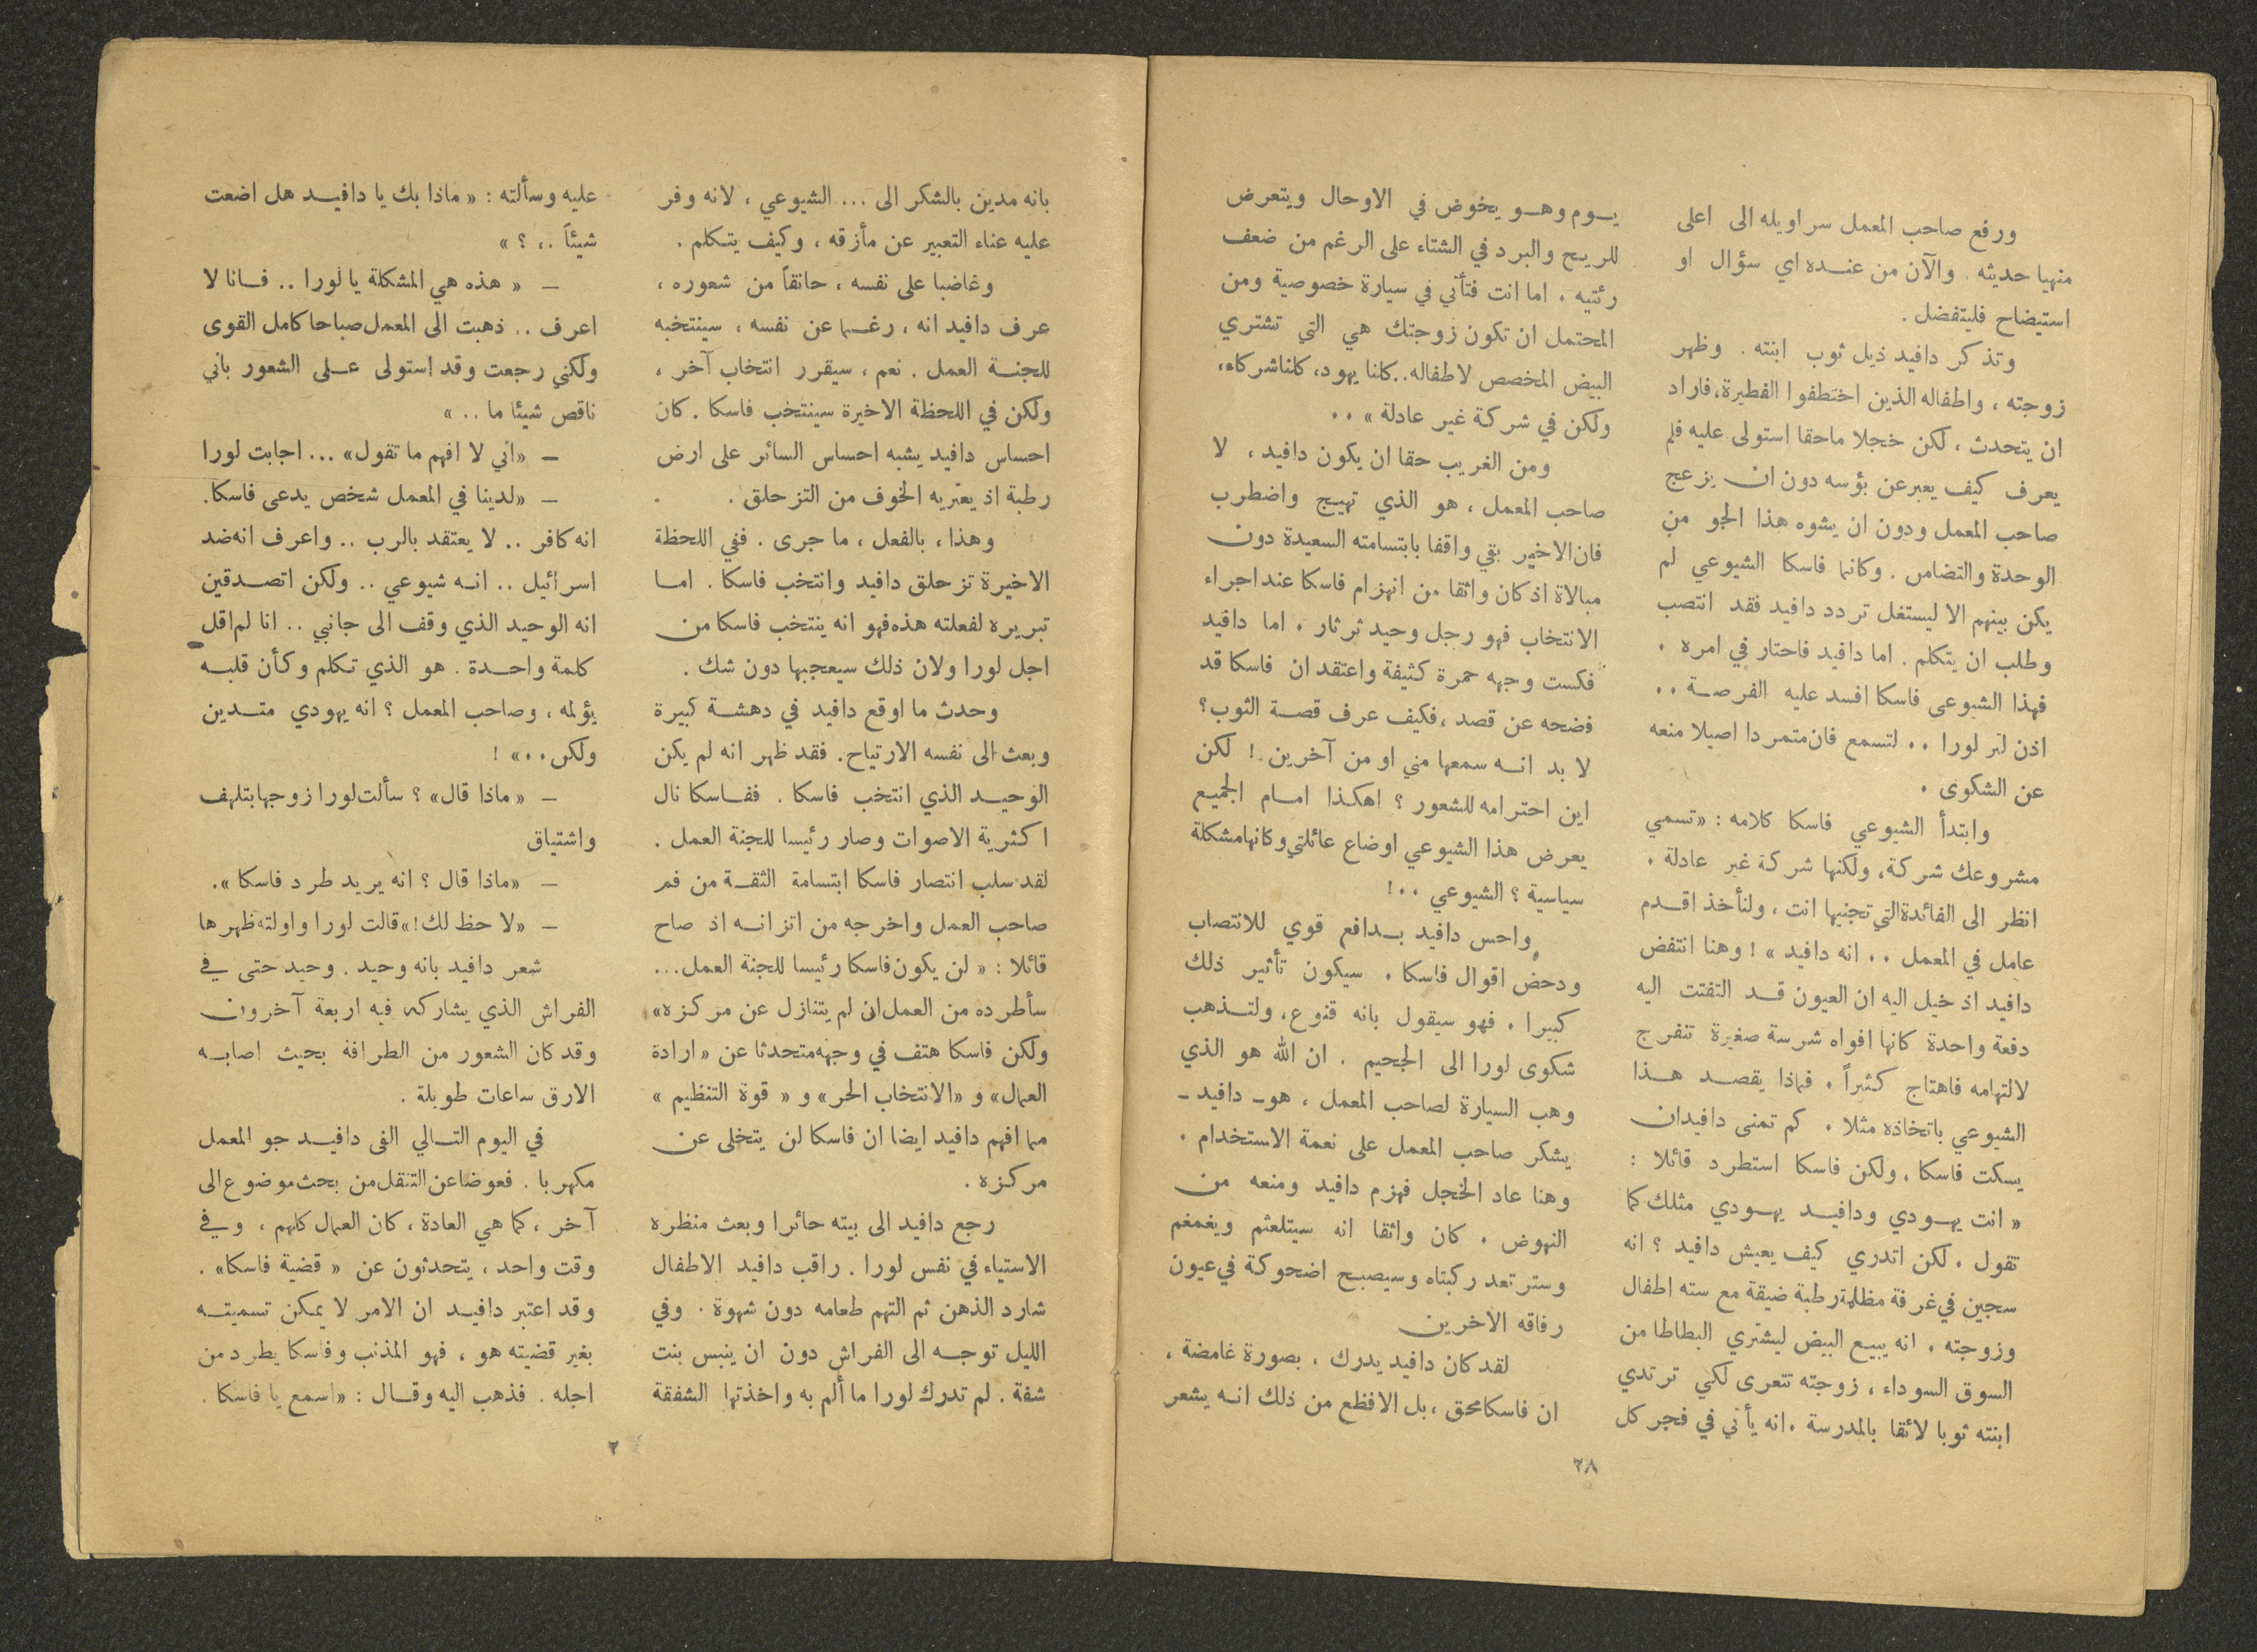 ورفع صاحب المعمل سراويله الى اعلى
منهيا حديثه . والآن من عنده اي سؤال او
استيضاح فليتفضل .
وتذكر دافيد ذيل ثوب ابنته . وظهر
زوجته ، واطفاله الذين اختطفوا الفطيرة، فاراد
ان يتحدث ، لكن خجلا ماحقا استولى عليه فلم
يعرف كيف يعبر عن بؤسه دون ان يزعج
صاحب المعمل ودون ان يشوه هذا الجو من
الوحدة والتضامن . وكانما فاسكا الشيوعي لم
يكن بينهم الا ليستغل تردد دافيد فقد انتصب
وطلب ان يتكلم . اما دافيد فاحتار في امره .
فهذا الشيوعي فاسكا افسد عليه الفرصة ..
اذن لتر لورا .. لتسمع فان متمردا اصيلا منعه
عن الشكوى .
وابتدأ الشيوعي فاسكا كلامه : «تسمي
مشروعك شركة، ولكنها شركة غير عادلة .
انظر الى الفائدة التي تجنيها انت ، ولنأخذ اقدم
عامل في المعمل .. انه دافيد » ! وهنا انتفض
دافيد اذ خيل اليه ان العيون قد التفتت اليه
دفعة واحدة كانها افواه شرسة صغيرة تنفرج
لالتهامه فاهتاج كثيراً . فماذا يقصد هذا
الشيوعي باتخاذه مثلا . كم تمنى دافيد ان
يسكت فاسكا . ولكن فاسكا استطرد قائلا :
« انت يهودي ودافيد يهودي مثلك كما
تقول . لكن اتدري كيف يعيش دافيد ؟ انه
سجين في غرفة مظلمة رطبة ضيقة مع سته اطفال
وزوجته . انه يبيع البيض ليشتري البطاطا من
السوق السوداء ، زوجته تتعرى لكي ترتدي
ابنته ثوبا لائقا بالمدرسة . انه يأتي في فجر كل
يوم وهو يخوض في الاوحال ويتعرض
للريح والبرد في الشتاء على الرغم من ضعف
رئتيه . اما انت فتأتي في سيارة خصوصية ومن
المحتمل ان تكون زوجتك هي التي تشتري
البيض المخصص لاطفاله.. كلنا يهود، كلنا شركاء،
ولكن في شركة غير عادلة » ..
ومن الغريب حقا ان يكون دافيد ، لا
صاحب المعمل ، هو الذي تهيج واضطرب
فان الاخير بقي واقفا بابتسامته السعيدة دون
مبالاة اذ كان واثقا من انهزام فاسكا عند اجراء
الانتخاب فهو رجل وحيد ثرثار . اما دافيد
فكست وجهه حمرة كثيفة واعتقد ان فاسكا قد
فضحه عن قصد ، فكيف عرف قصة الثوب؟
لا بد انه سمعها مني او من آخرين ! لكن
اين احترامه للشعور ؟ اهكذا امام الجميع
يعرض هذا الشيوعي اوضاع عائلتي وكانها مشكلة
سياسية ؟ الشيوعي ..!
واحس دافيد بدافع قوي للانتصاب
ودحض اقوال فاسكا . سيكون تأثير ذلك
كبيرا . فهو سيقول بانه قنوع ، ولتذهب
شكوى لورا الى الجحيم . ان الله هو الذي
وهب السيارة لصاحب المعمل ، هو ـ دافيد ـ
يشكر صاحب المعمل على نعمة الاستخدام .
وهنا عاد الخجل فهزم دافيد ومنعه من
النهوض . كان واثقا انه سيتلعثم ويغمغم
وسترتعد ركبتاه وسيصبح اضحوكة في عيون
رفاقه الاخرين
لقد كان دافيد يدرك ، بصورة غامضة ،
ان فاسكا محق ، بل الافظع من ذلك انه يشعر
٢٨
بانه مدين بالشكر الى ... الشيوعي ، لانه وفر
عليه عناء التعبير عن مأزقه ، وكيف يتكلم .
وغاضبا على نفسه ، حانقاً من شعوره ،
عرف دافيد انه ، رغما عن نفسه ، سينتخبه
للجنة العمل . نعم ، سيقرر انتخاب آخر ،
ولكن في اللحظة الاخيرة سينتخب فاسكا . كان
احساس دافيد يشبه احساس السائر على ارض
رطبة اذ يعتريه الخوف من التزحلق .
وهذا ، بالفعل ، ما جرى . ففي اللحظة
الاخيرة تزحلق دافيد وانتخب فاسكا . اما
تبريره لفعلته هذه فهو انه ينتخب فاسكا من
اجل لورا ولان ذلك سيعجبها دون شك .
وحدث ما اوقع دافيد في دهشة كبيرة
وبعث الى نفسه الارتياح. فقد ظهر انه لم يكن
الوحيد الذي انتخب فاسكا . ففاسكا نال
اكثرية الاصوات وصار رئيسا للجنة العمل .
لقد سلب انتصار فاسكا ابتسامة الثقة من فم
صاحب العمل واخرجه من اتزانه اذ صاح
قائلا : « لن يكون فاسكا رئيسا للجنة العمل...
سأطرده من العمل ان لم يتنازل عن مركزه»
ولكن فاسكا هتف في وجهه متحدثا عن « ارادة
العمال» و «الانتخاب الحر» و « قوة التنظيم »
مما افهم دافيد ايضا ان فاسكا لن يتخلى عن
مركزه .
رجع دافيد الى بيته حائرا وبعث منظره
الاستياء في نفس لورا . راقب دافيد الاطفال
شارد الذهن ثم التهم طعامه دون شهوة . وفي
الليل توجه الى الفراش دون ان ينبس بنت
شفة . لم تدرك لورا ما ألم به واخذتها الشفقة
عليه وسألته : « ماذا بك يا دافيد هل اضعت
شيئاً .. ؟ »
ـ « هذه هي المشكلة يا لورا .. فانا لا
اعرف .. ذهبت الى المعمل صباحا كامل القوى
ولكني رجعت وقد استولى على الشعور باني
ناقص شيئا ما .. »
ـ «اني لا افهم ما تقول» ... اجابت لورا
ـ «لدينا في المعمل شخص يدعى فاسكا.
انه كافر .. لا يعتقد بالرب .. واعرف انه ضد
اسرائيل .. انه شيوعي .. ولكن اتصدقين
انه الوحيد الذي وقف الى جانبي .. انا لم اقل
كلمة واحدة . هو الذي تكلم وكأن قلبه
يؤلمه ، وصاحب المعمل ؟ انه يهودي متدين
ولكن ..» !
ـ « ماذا قال» ؟ سألت لورا زوجها بتلهف
واشتياق
ـ «ماذا قال ؟ انه يريد طرد فاسكا ».
ـ «لا حظ لك!» قالت لورا واولته ظهرها
شعر دافيد بانه وحيد . وحيد حتى في
الفراش الذي يشاركه فيه اربعة آخرون
وقد كان الشعور من الطرافة بحيث اصابه
الارق ساعات طويلة .
في اليوم التالي الفى دافيد جو المعمل
مكهربا . فعوضا عن التنقل من بحث موضوع الى
آخر ، كما هي العادة ، كان العمال كلهم ، وفي
وقت واحد ، يتحدثون عن « قضية فاسكا» .
وقد اعتبر دافيد ان الامر لا يمكن تسميته
بغير قضيته هو ، فهو المذنب وفاسكا يطرد من
اجله . فذهب اليه وقال : «اسمع يا فاسكا .
٢